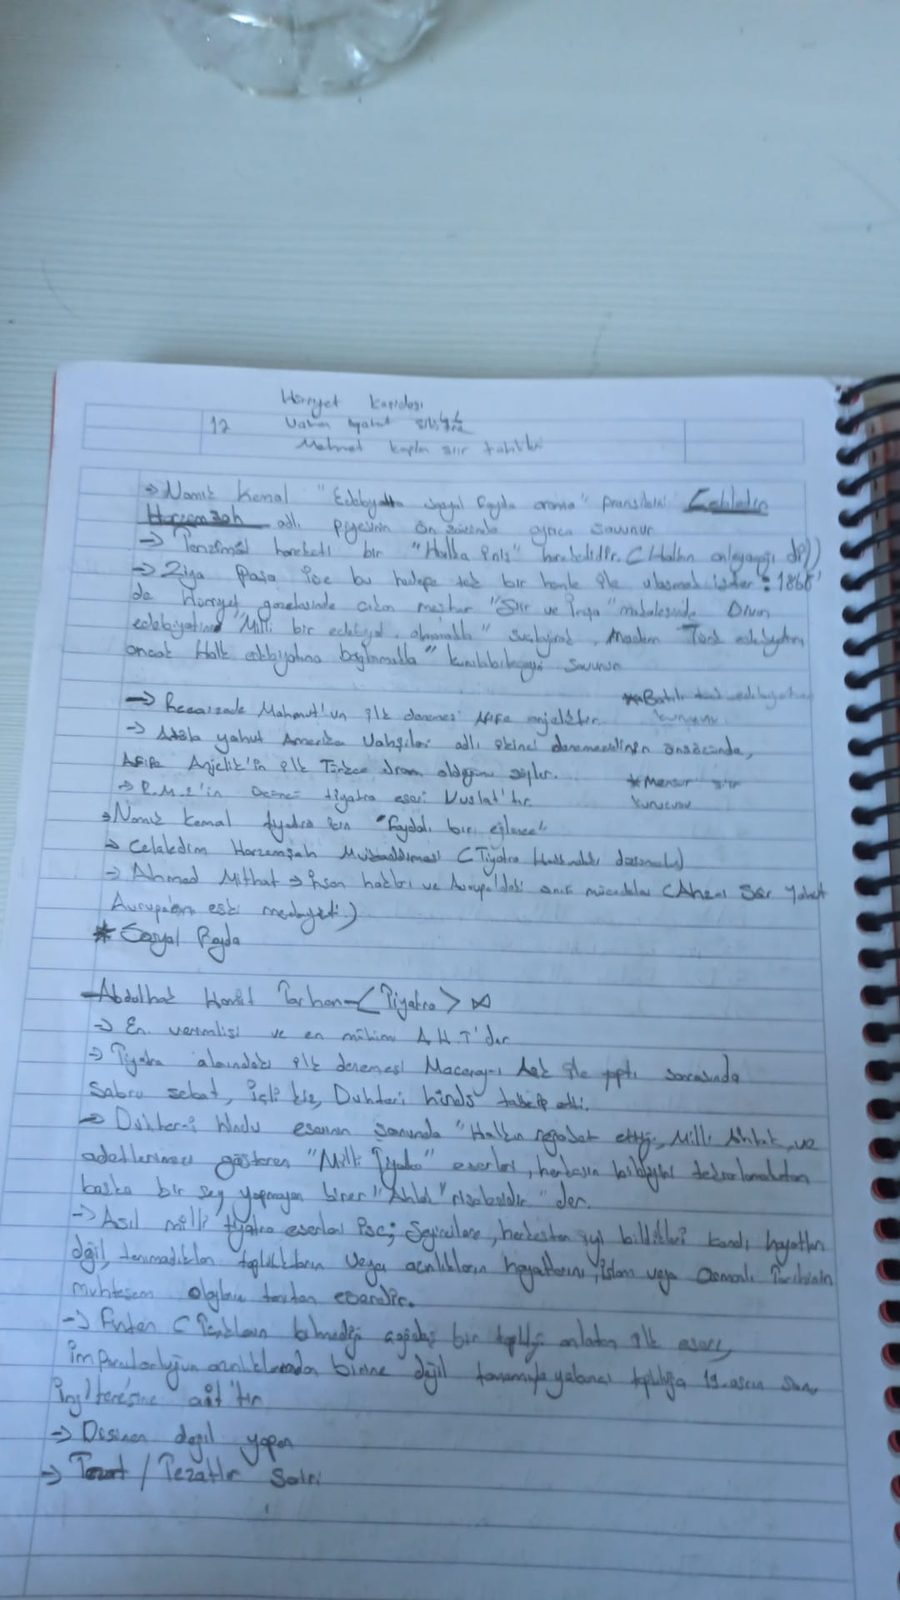 Hürriyet Kasidesi
12 Vatan yahut Silistre
Mehmet Kaplan şiir tahlilleri
→ Namık Kemal "Edebiyatta sosyal fayda arama" prensibini Celaledin
Harzemşah adlı piyesinin ön sözünde ayrıca savunur
→ Tanzimat hareketi bir "Halka iniş" hareketidir. (Halkın anlayacağı dil)
→ Ziya Paşa ise bu hedefe tek bir hamle ile ulaşmak ister: 1868'
de Hürriyet gazetesinde çıkan meşhur "Şiir ve İnşa" makalesinde Divan
edebiyatını "Milli bir edebiyat olmamakla" suçlayarak, Modern Türk edebiyatının
ancak Halk edebiyatına bağlanmakla" kurulabileceğini savunur
→ Recaizade Mahmut'un ilk denemesi Afife anjeliktir.
*Batılı türk edebiyatının
kurucusu
→ Atala yahut Amerika Vahşileri adlı ikinci denemesinin önsözünde,
Afife Anjelik'in ilk Türkçe dram olduğunu söyler.
*Mensur şiir
kurucusu
→ R.M.E'in üçüncü tiyatro eseri Vuslat'tır
→ Namık Kemal tiyatro için "Faydalı bir eğlence"
→ Celaledin Harzemşah Mukaddimesi (Tiyatro Hakkındaki
→ Ahmed Mithat → İnsan hakları ve Avrupa'daki sınıf mücadelesi (Ahz-ı Sar yahut
Avrupanın eski medeniyeti)
* Sosyal Fayda
Abdulhak Hamit Tarhan <Tiyatro>
→ En verimlisi ve en mühimi A.H.T'dır
→ Tiyatro alanındaki ilk denemesi Macerayı Aşk ile yaptı sonrasında
Sabru sebat, İçli kız, Duhteri hindu takip etti.
→ Duhter-i Hindu eserinin sonunda "Halkın rağbet ettiği, Milli Ahlak ve
adetlerimizi gösteren "Milli Tiyatro" eserleri, herkesin bildiğini tekrarlamaktan
başka bir şey yapmayan birer "Ahlak" risalesidir" der.
→ Asıl milli tiyatro eserleri ise; Seyircilere, herkesten iyi bildikleri kendi hayatları
değil, tanımadıkları toplulukların veya azınlıkların hayatlarını, İslam veya Osmanlı Tarihinin
muhteşem olayların tanıtan eserlerdir.
→ Finten (Türklerin bilmediği çağdaş bir topluluğu anlatan ilk eseri,
İmparatorluğun azınlıklarından birine değil tamamıyla yabancı topluluğa 19. asrın sonu
İngiltere'sine aittir
→ Düşünen değil yapan
→ Tezat / Tezatlar Şairi